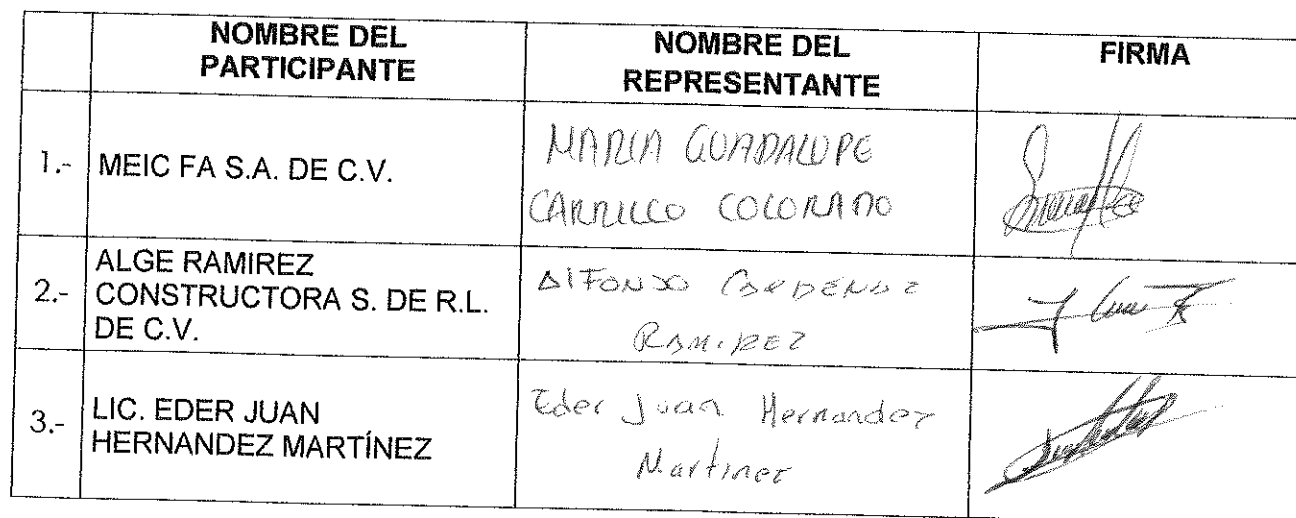 NOMBRE DEL
PARTICIPANTE
NOMBRE DEL
REPRESENTANTE
FIRMA
1.-
MEIC FA S.A. DE C.V.
MARIA GUADALUPE
CARRILLO COLORADO
2.-
ALGE RAMIREZ
CONSTRUCTORA S. DE R.L.
DE C.V.
AlFONSO
RAMIREZ
3.-
LIC. EDER JUAN
HERNANDEZ MARTÍNEZ
Eder Juan Hernandez
Martinez